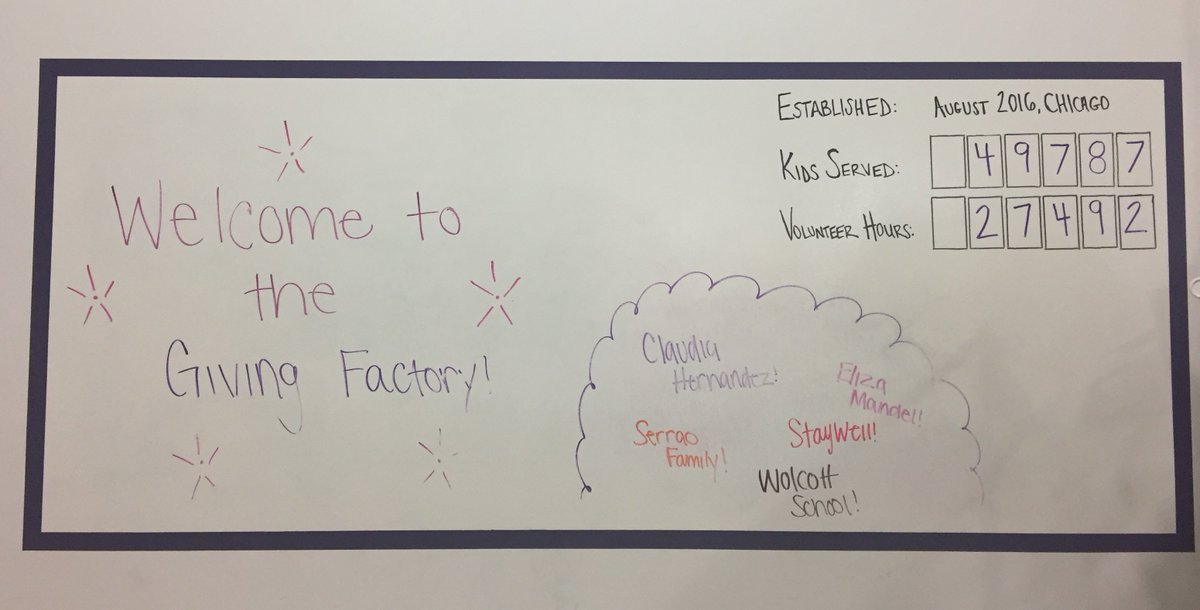 Welcome to
the
Giving Factory!
ESTABLISHED: AUGUST 2016, CHICAGO
KIDS SERVED: 49787
VOLUNTEER HOURS: 27492
Claudia
Hernandez!
Eliza
Mandel!
Serrao
Family!
StayWell!
Wolcott
School!